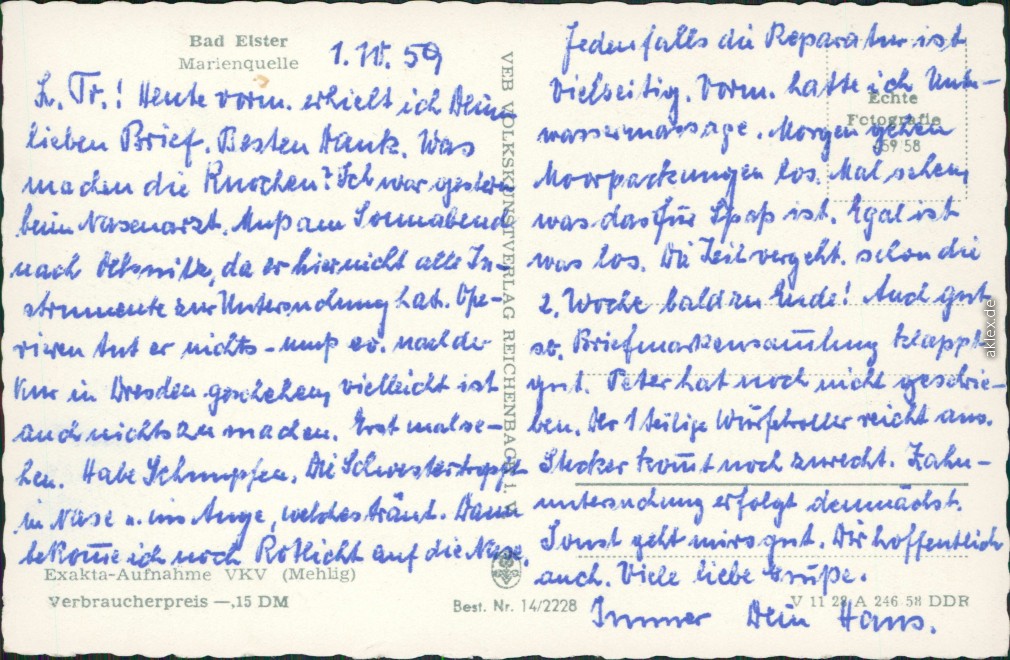 Bad Elster
Marienquelle
1. IV. 59
L. Tr.! Heute vorm. erhielt ich Deinen
lieben Brief. Besten Dank. Was
machen die Knochen? Ich war gestern
beim Nasenarzt. Muß am Sonnabend
nach Oelsnitz, da er hier nicht alle In-
strumente zur Untersuchung hat. Ope-
rieren tut er nichts - muß ev. nach der
Kur in Dresden geschehen, vielleicht ist
auch nichts zu machen. Erst mal se-
hen. Habe Schnupfen. Die Schwester tropft
in Nase u. ins Auge, welches tränt. Dann
bekome ich noch Rotlicht auf die Nase.
Exakta-Aufnahme VKV (Mehlig)
Verbraucherpreis —,15 DM
VEB VOLKSKUNSTVERLAG REICHENBACH I. V.
Best. Nr. 14/2228
Jedenfalls die Reparatur ist
vielseitig. Vorm. hatte ich Unter-
wassermassage. Morgen gehen
Moorpackungen los. Mal sehen,
was das für Spaß ist. Egal ist
was los. Die Zeit vergeht. schon die
2. Woche bald zu Ende! Auch gut
so. Briefmarkensammlung klappt
gut. Peter hat noch nicht geschrie-
ben. Der 1 teilige reicht aus.
Stecker komt noch zurecht. Zahn-
untersuchung erfolgt demnächst.
Sonst geht mirs gut. Dir hoffentlich
auch. Viele liebe Grüße.
Immer Dein Hans.
Echte
Fotografie
459 58
V 11 28 A 246 58 DDR
aklex.de